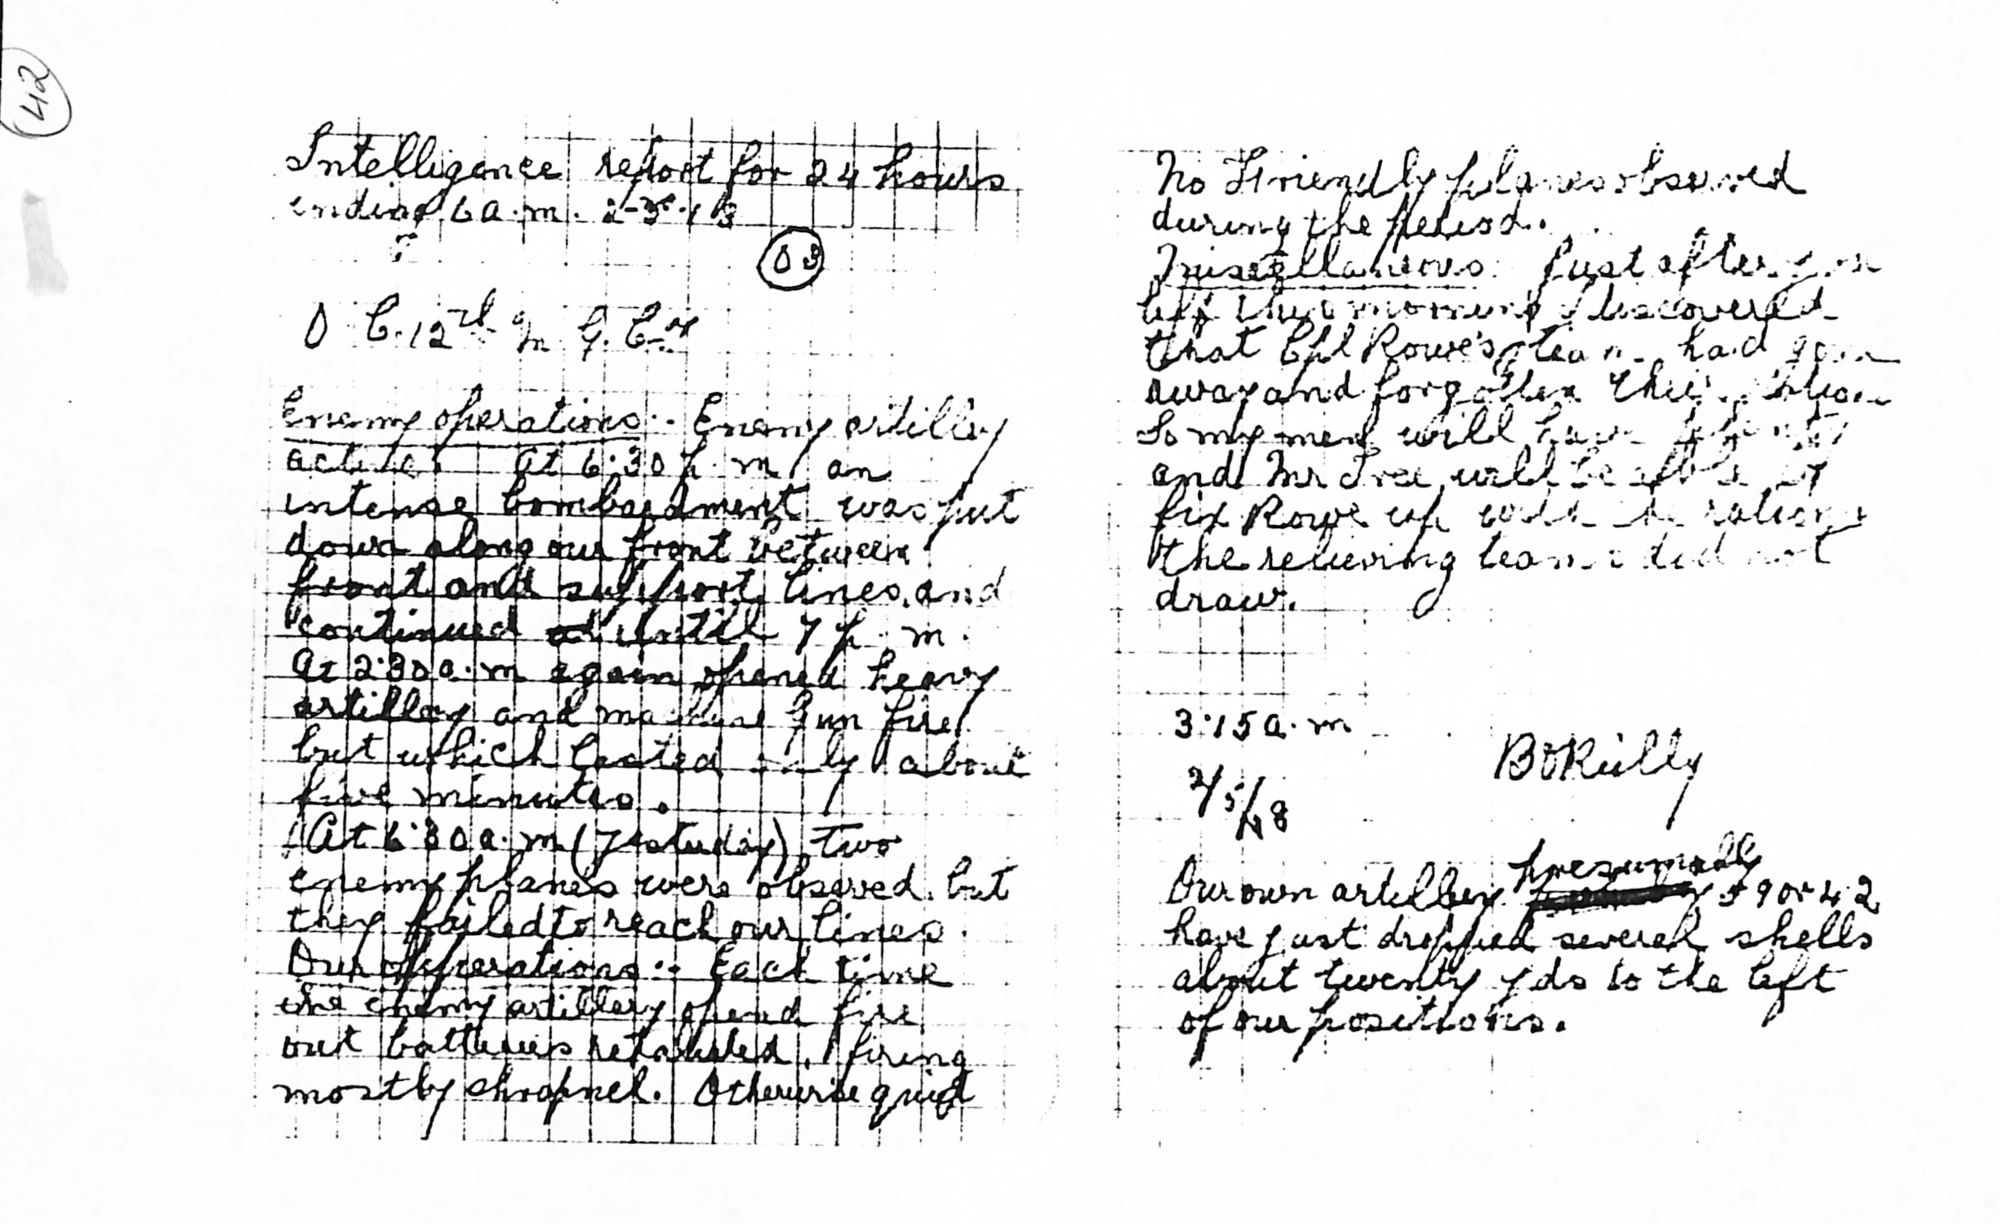 42
Intelligence report for 24 hours
ending 6 a.m. 2-5-18
D 3
O C. 12th M. G. Coy
Enemy operations:- Enemy artillery
active. At 6:30 p.m an
intense bombardment was put
down along our front between
front and support lines, and
continued until 7 p.m.
At 2:30 a.m again opened heavy
artillery and machine gun fire
but which lasted only about
five minutes.
At 6:30 a.m (Yesterday) two
enemy planes were observed but
they failed to reach our lines.
Our operations:- Each time
the enemy artillery opened fire
out batteries retaliated, firing
mostly shrapnel. Otherwise quiet
No Friendly planes observed
during the period.
Miscellaneous: Just after you
left this morning I discovered
that Cpl Rowe's team had gone
away and forgotten their
So my men will have
and Mr Tree will be able to
fix Rowe up with the rations
the relieving team did not
draw.
3:15 a.m
BO'Reilly
2/5/18
Our own artillery presumably 5 9 or 4 2
have just dropped several shells
about twenty yds to the left
of our positions.